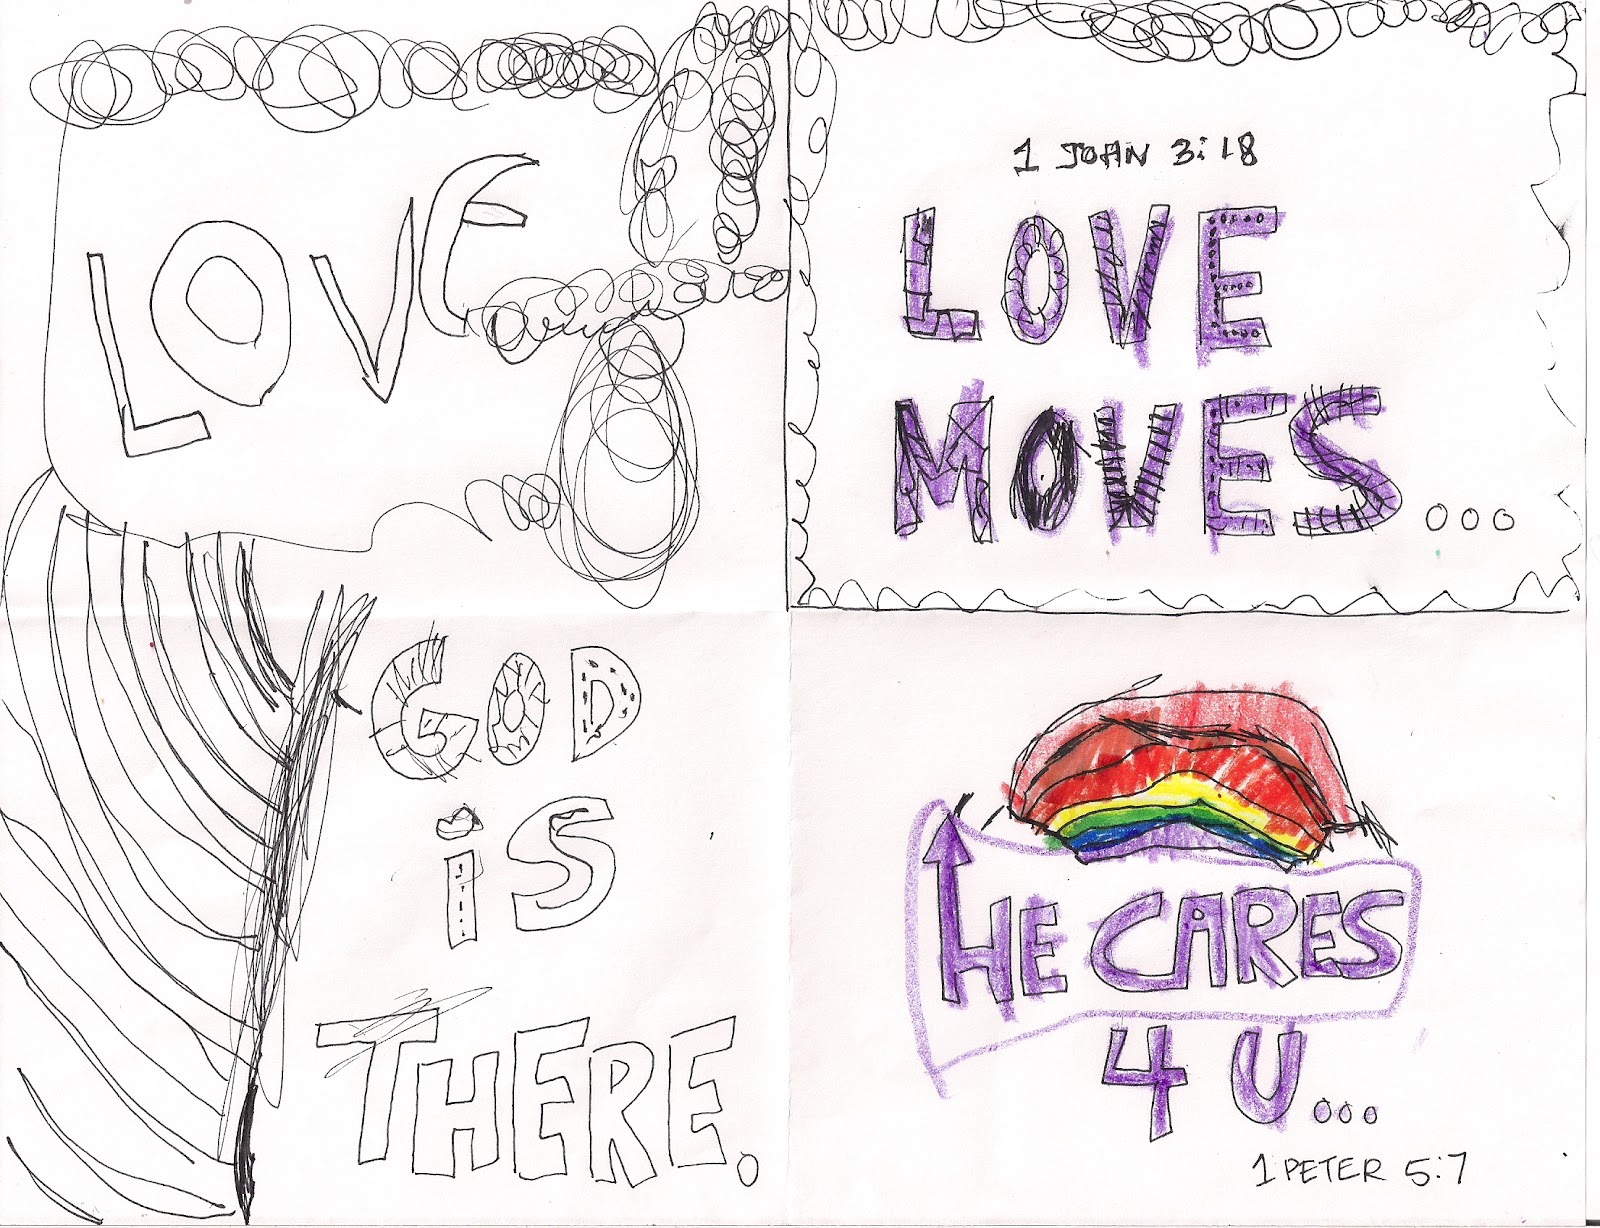 LOVE
1 JOHN 3:18
LOVE
MOVES...
GOD
iS
THERE.
HE CARES
4 U...
1 PETER 5:7